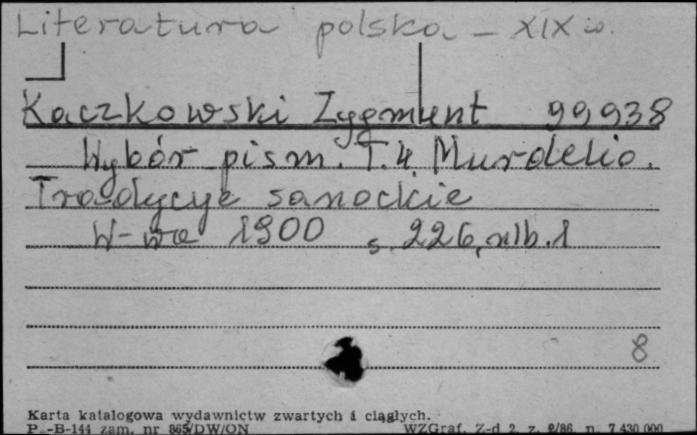 Literatura polska – XIX w.
Kaczkowski Zygmunt 99938
Wybór pism. T. 4. Murdelio.
Tradycye sanockie
W-wa 1900 s. 226, nlb. 1
8
Karta katalogowa wydawnictw zwartych i ciągłych.
P.-B-144 zam. nr 865/DW/ON WZGraf. Z-d 2. z. 2/86. n. 7.430.000